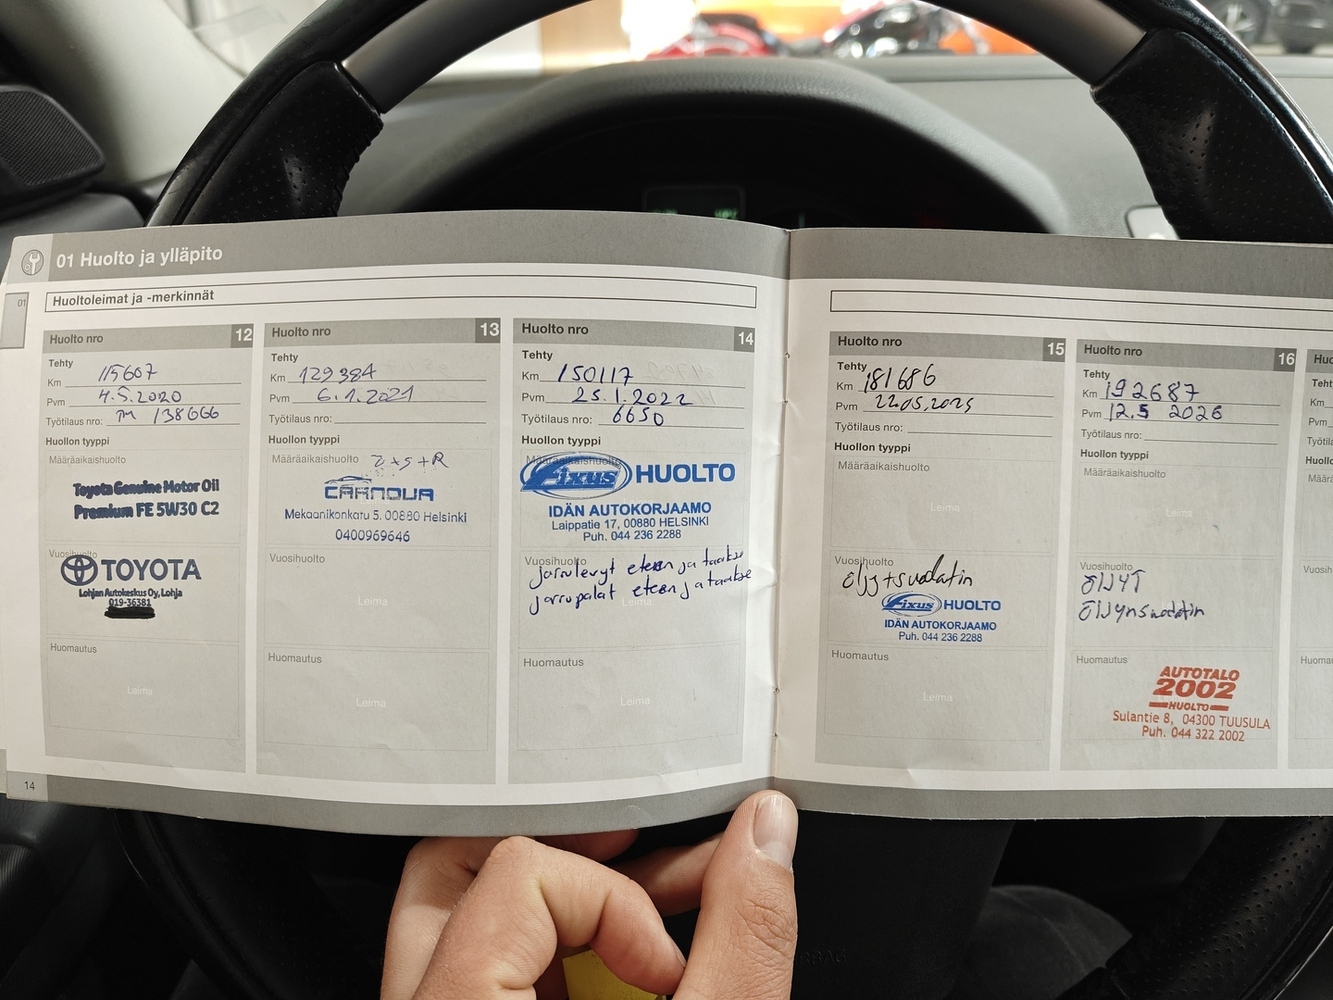 01 Huolto ja ylläpito
01
Huoltoleimat ja -merkinnät
Huolto nro 12
Tehty
Km 115607
Pvm 4.5.2020
Työtilaus nro: TM 138666
Huollon tyyppi
Määräaikaishuolto
Toyota Genuine Motor Oil
Premium FE 5W30 C2
Vuosihuolto
TOYOTA
Lohjan Autokeskus Oy, Lohja
019-36381
Huomautus
Leima
14
Huolto nro 13
Tehty
Km 129384
Pvm 6.1.2021
Työtilaus nro:
Huollon tyyppi
Määräaikaishuolto
CARNOVA
Mekaanikonkatu 5. 00880 Helsinki
0400969646
Vuosihuolto
Leima
Huomautus
Leima
Huolto nro 14
Tehty
Km 150117
Pvm 25.1.2022
Työtilaus nro: 6650
Huollon tyyppi
Määräaikaishuolto
Fixus HUOLTO
IDÄN AUTOKORJAAMO
Laippatie 17, 00880 HELSINKI
Puh. 044 236 2288
Vuosihuolto
jarrulevyt eteen ja taakse
jarrupalat eteen ja taakse
Leima
Huomautus
Leima
Huolto nro 15
Tehty
Km 181686
Pvm 22.05.2025
Työtilaus nro:
Huollon tyyppi
Määräaikaishuolto
Leima
Vuosihuolto
öljy+suodatin
Fixus HUOLTO
IDÄN AUTOKORJAAMO
Puh. 044 236 2288
Huomautus
Leima
Huolto nro 16
Tehty
Km 192687
Pvm 12.5 2026
Työtilaus nro:
Huollon tyyppi
Määräaikaishuolto
Leima
Vuosihuolto
ÖLJYT
ÖLJYnsuodatin
Huomautus
AUTOTALO
2002
HUOLTO
Sulantie 8, 04300 TUUSULA
Puh. 044 322 2002